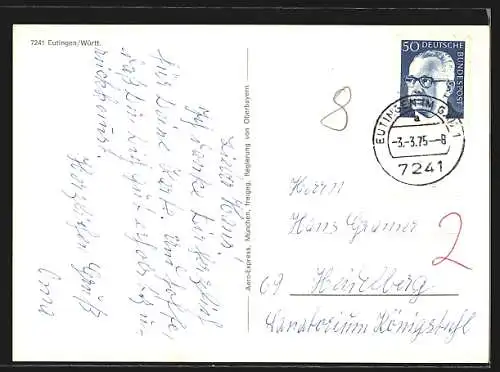 7241 Eutingen/Württ.
Lieber Hans!
Ich danke Dir herzlich
für Deine Karte. Und hoffe,
daß Du Dich gut erholt zu-
rückkommst.
Herzlichen Gruß
Aero-Express, München, freigeg. Regierung von Oberbayern
50 DEUTSCHE
BUNDESPOST
EUTINGEN IM GÄU 1
a
-3.-3.75--8
7241
8
Herrn
Hans Gramer
2
69 Heidelberg
Sanatorium Königstuhl